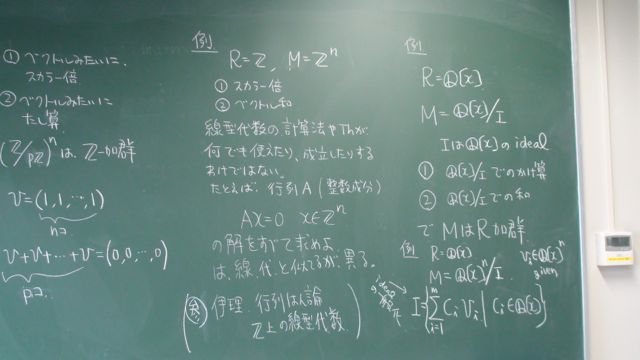 ① ベクトルみたいに、
スカラー倍
② ベクトルみたいに
たし算
(Z/pZ)^n は、Z-加群
v=(1,1,…,1)
nコ
v+v+…+v=(0,0,…,0)
pコ
例
R=Z, M=Z^n
① スカラー倍
② ベクトル和
線型代数の計算法やThが、
何でも使えたり、成立したりする
わけではない。
たとえば、行列A(整数成分)
AX=0 X∈Z^n
の解をすべて求めよ
は、線代と似てるが、異る。
(参) 伊理 行列はん論
Z上の線型代数
例
R=Q[x]
M=Q[x]/I
IはQ[x]のideal
① Q[x]/Iでのかけ算
② Q[x]/Iでの和
で MはR加群
例 R=Q[x] v_i∈Q[x]^n
M=Q[x]^n/I given
I={∑_{i=1}^m C_i v_i | C_i∈Q[x]}